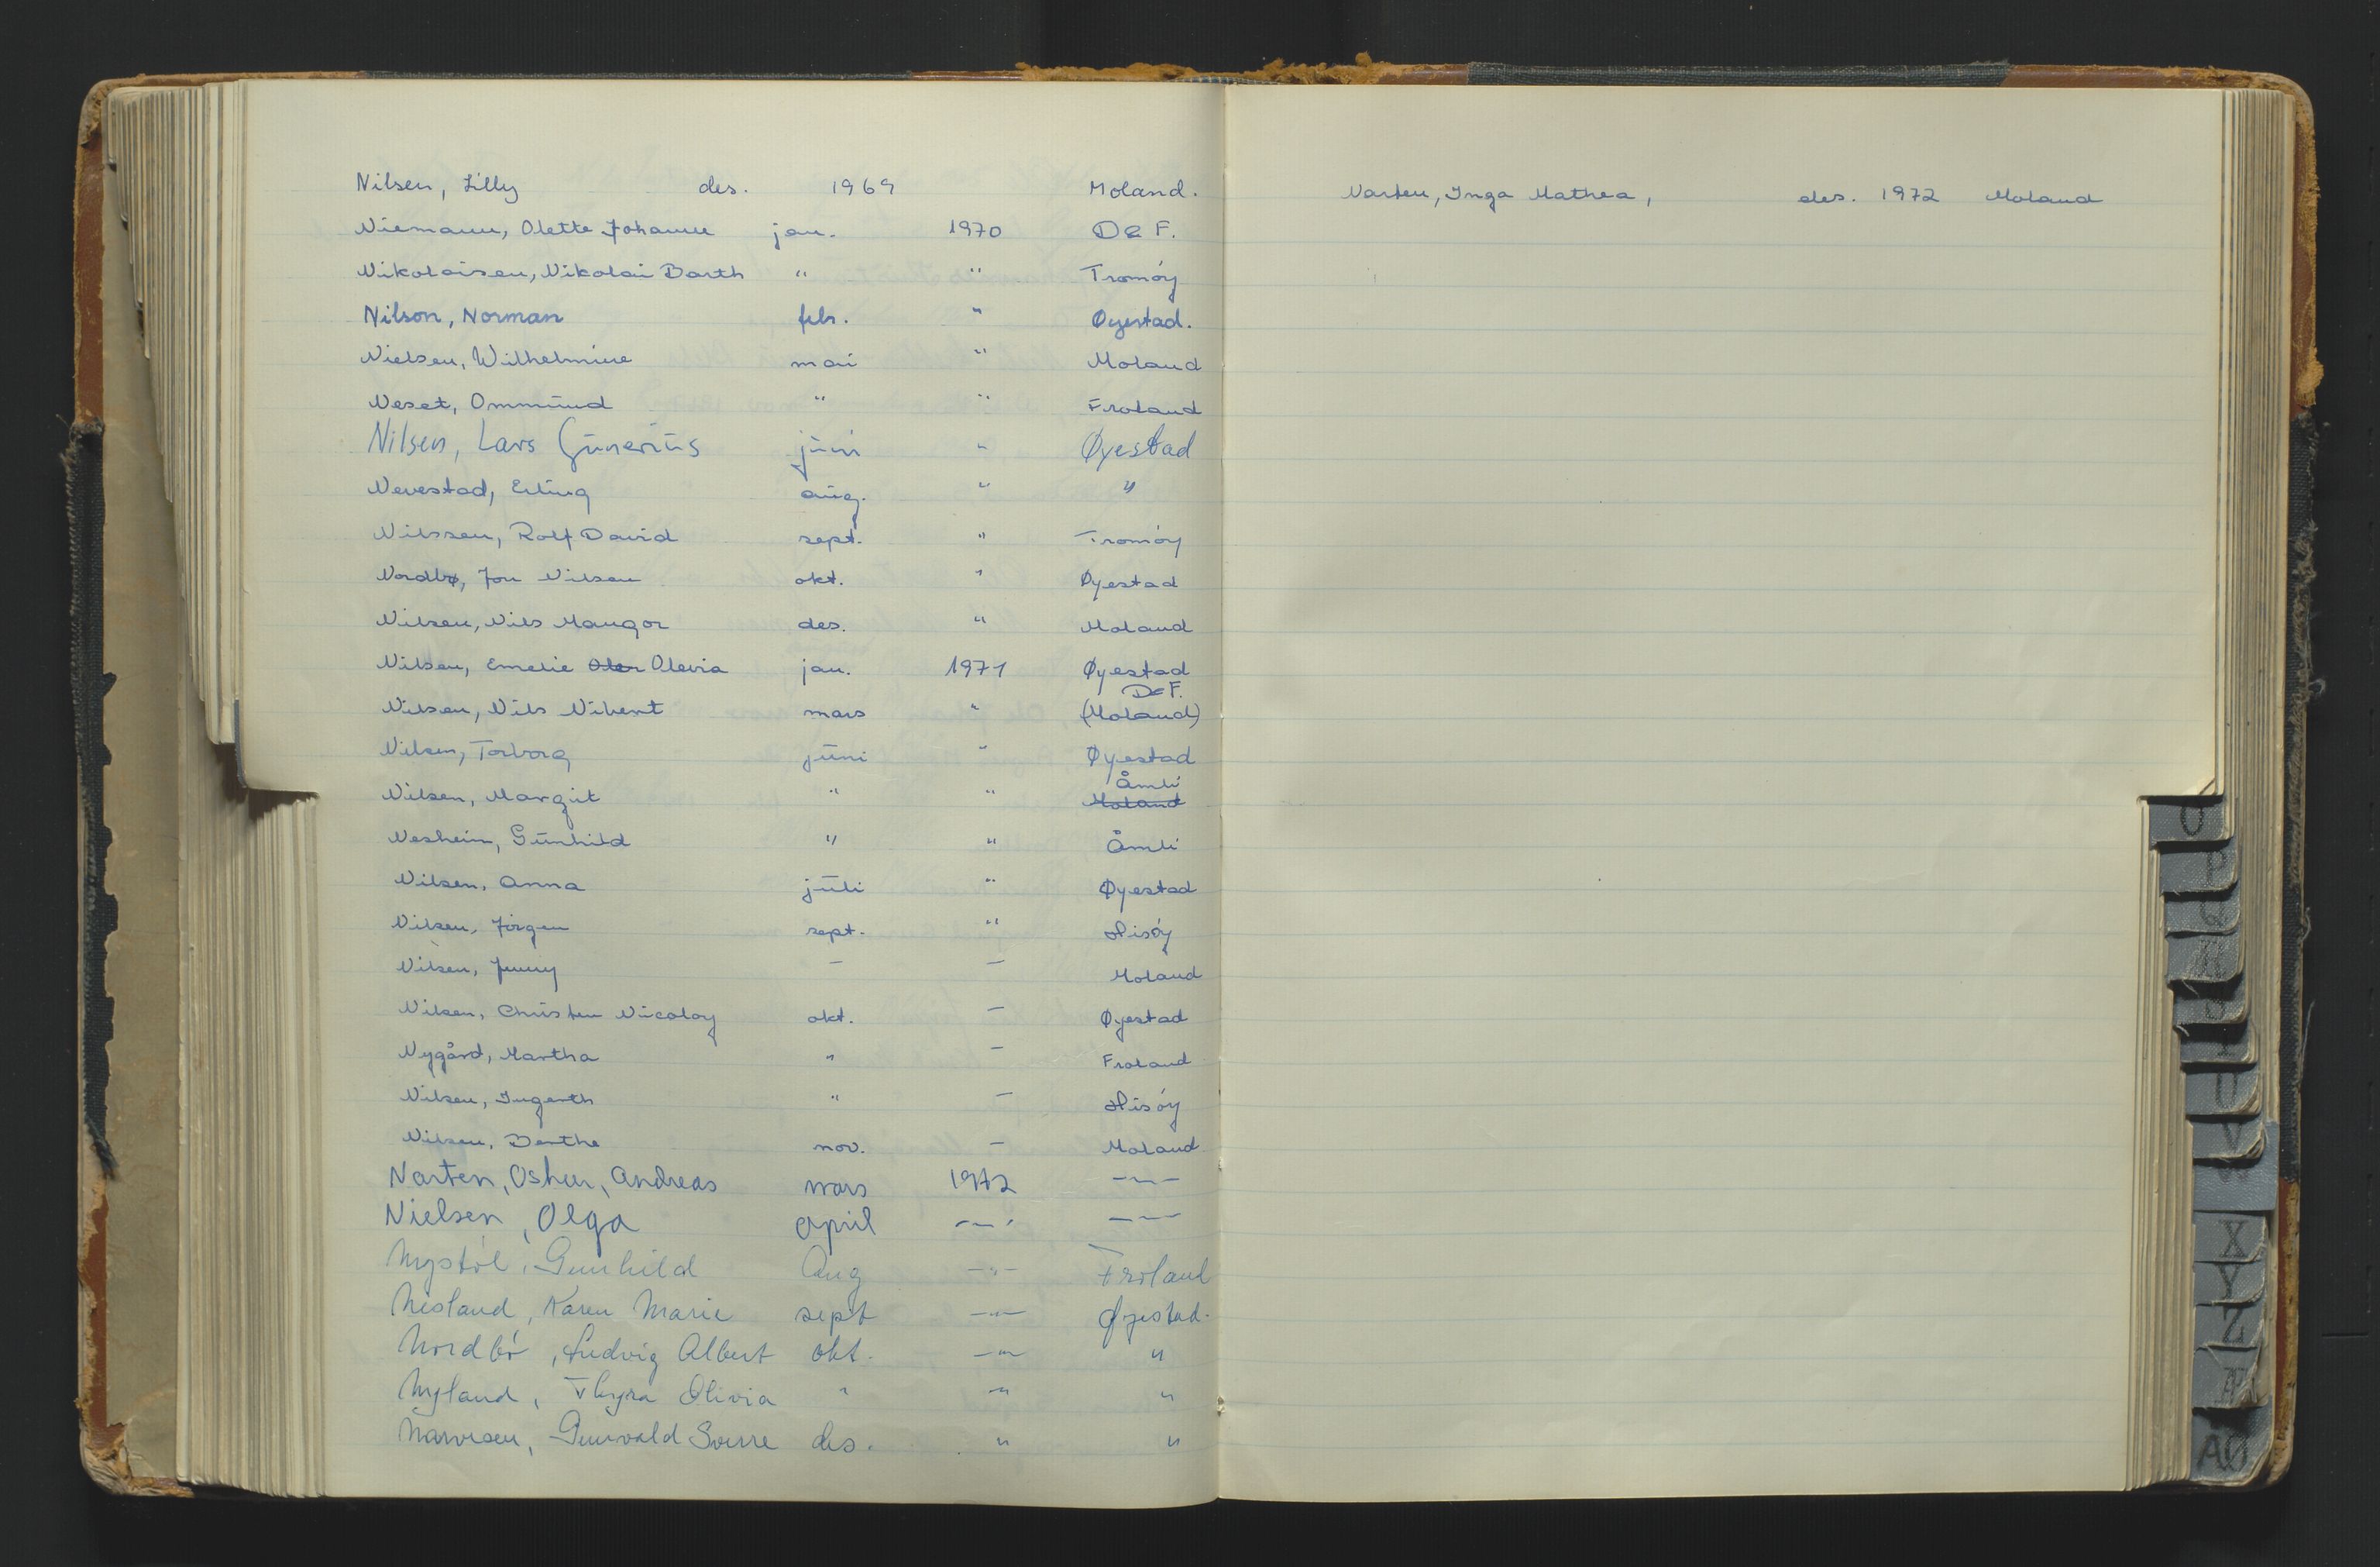 Nilsen, Lilly des. 1969 Moland.
Niemann, Olette Johanne jan. 1970 De F.
Nikolaisen, Nikolai Barth " " Tromóy
Nilson, Norman febr. " Øyestad.
Nielsen, Wilhelmine mai " Moland
Neset, Ommund " " Froland
Nilsen, Lars Gunerius juni " Øyestad
Nevestad, Erling aug. " "
Nilssen, Rolf David sept. " Tromóy
Nordbø, Jon Nilsen okt. " Øyestad
Nilsen, Nils Mangor des. " Moland
Nilsen, Emelie Olevia jan. 1971 Øyestad
De F.
Nilsen, Nils mars " (Moland)
Nilsen, Torborg juni " Øyestad
Åmli
Nilsen, Margit " " Moland
Neshein, Gunhild " " Åmli
Nilsen, Anna juli " Øyestad
Nilsen, Jörgen sept. " Hisóy
Nilsen, Jenny - - Moland
Nilsen, Christen Nicolay okt. - Øyestad
Nygård, Martha " - Froland
Nilsen, Ingerth " - Hisóy
Nilsen, Berthe nov. - Moland
Narten, Andreas mars 1972 -"-
Nielsen, Olga april -"- -"-
Nystöl, Gunhild Aug -"- Froland
Nesland, Karen Marie sept -"- Øyestad.
Nordbó, Ludvig Albert okt. -"- "
Nyland, Thyra Olivia " -"- "
Narvesen, Gunvald Sverre des. " "
Narten, Inga Mathea, des. 1972 Moland
O
P
Q
R
S
T
U
V
W
X
Y
Z
Æ
AØ